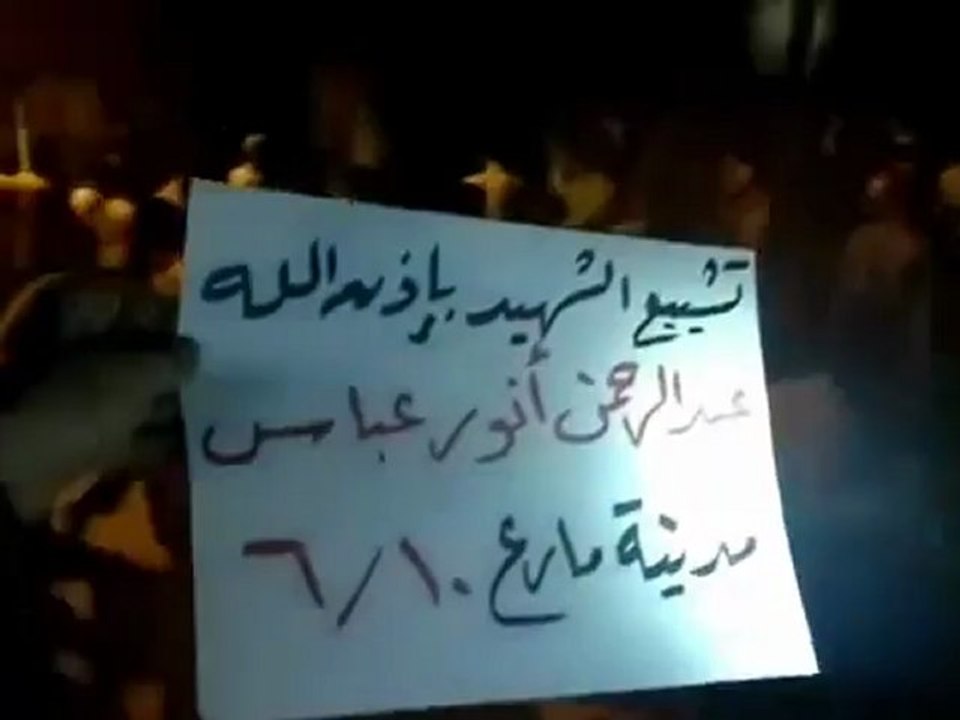 تشييع الشهيد بإذن الله
عبدالرحمن أنور عباس
مدينة مارع ٦/١٠